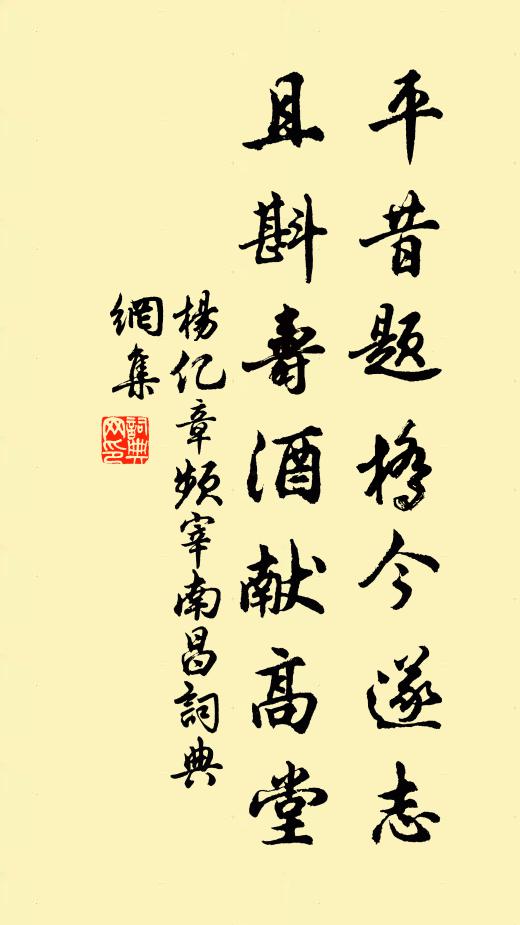 平昔题桥今遂志
且斟壽酒献高堂
楊亿章频宰南昌詞典
網集
詞典
网印